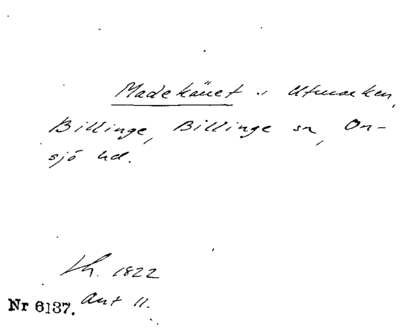 Madekäret i Utmarken,
Billinge, Billinge sn, On-
sjö hd.
Lh. 1822
Nr 6137. Akt 11.